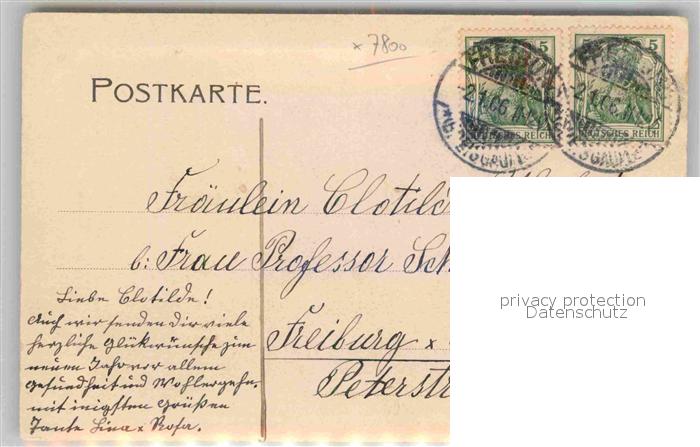 x 7800
POSTKARTE.
5 5
FREIBURG
DEUTSCHES REICH
DEUTSCHES REICH
Fräulein Clotild
b: Frau Professor Sch
Freiburg x
Peterstr
Liebe Clotilde!
Auch wir senden dir viele
herzliche Glükwünsche zum
neuen Jahr vor allem
Gesundheit und Wohlergehn,
mit inigsten Grüßen
Tante Lina x Rosa.
privacy protection
Datenschutz